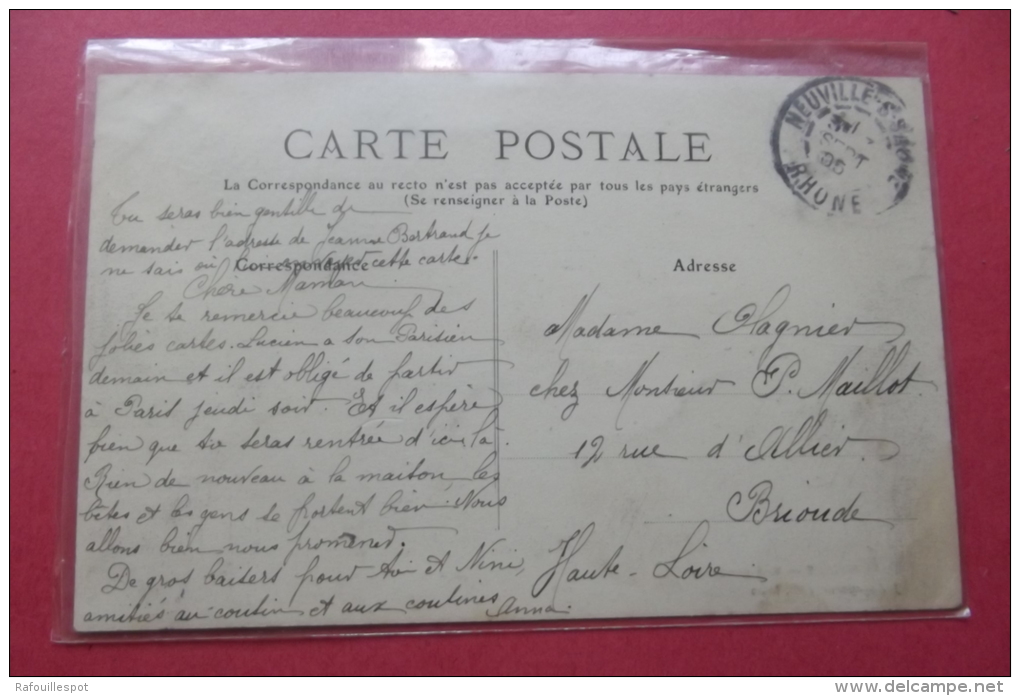 CARTE POSTALE
La Correspondance au recto n'est pas acceptée par tous les pays étrangers
(Se renseigner à la Poste)
NEUVILLE-S-SAONE
SEPT
RHONE
Tu seras bien gentille de
demander l'adresse de Jeanne Bertrand je
ne sais où cette carte.
Correspondance
Chère Maman
Je te remercie beaucoup des
jolies cartes. Lucien a son Parisien
demain et il est obligé de partir
à Paris jeudi soir. Et il espère
bien que tu seras rentrée d'ici là.
Rien de nouveau à la maison les
bêtes et les gens se portent bien. Nous
allons bien nous promener.
De gros baisers pour toi et Nini,
amitiés au cousin et aux cousines
Anna.
Adresse
Madame Clagnier
chez Monsieur P. Maillot.
12 rue d'Allier.
Brioude
Haute-Loire
Rafouillespot
www.delcampe.net